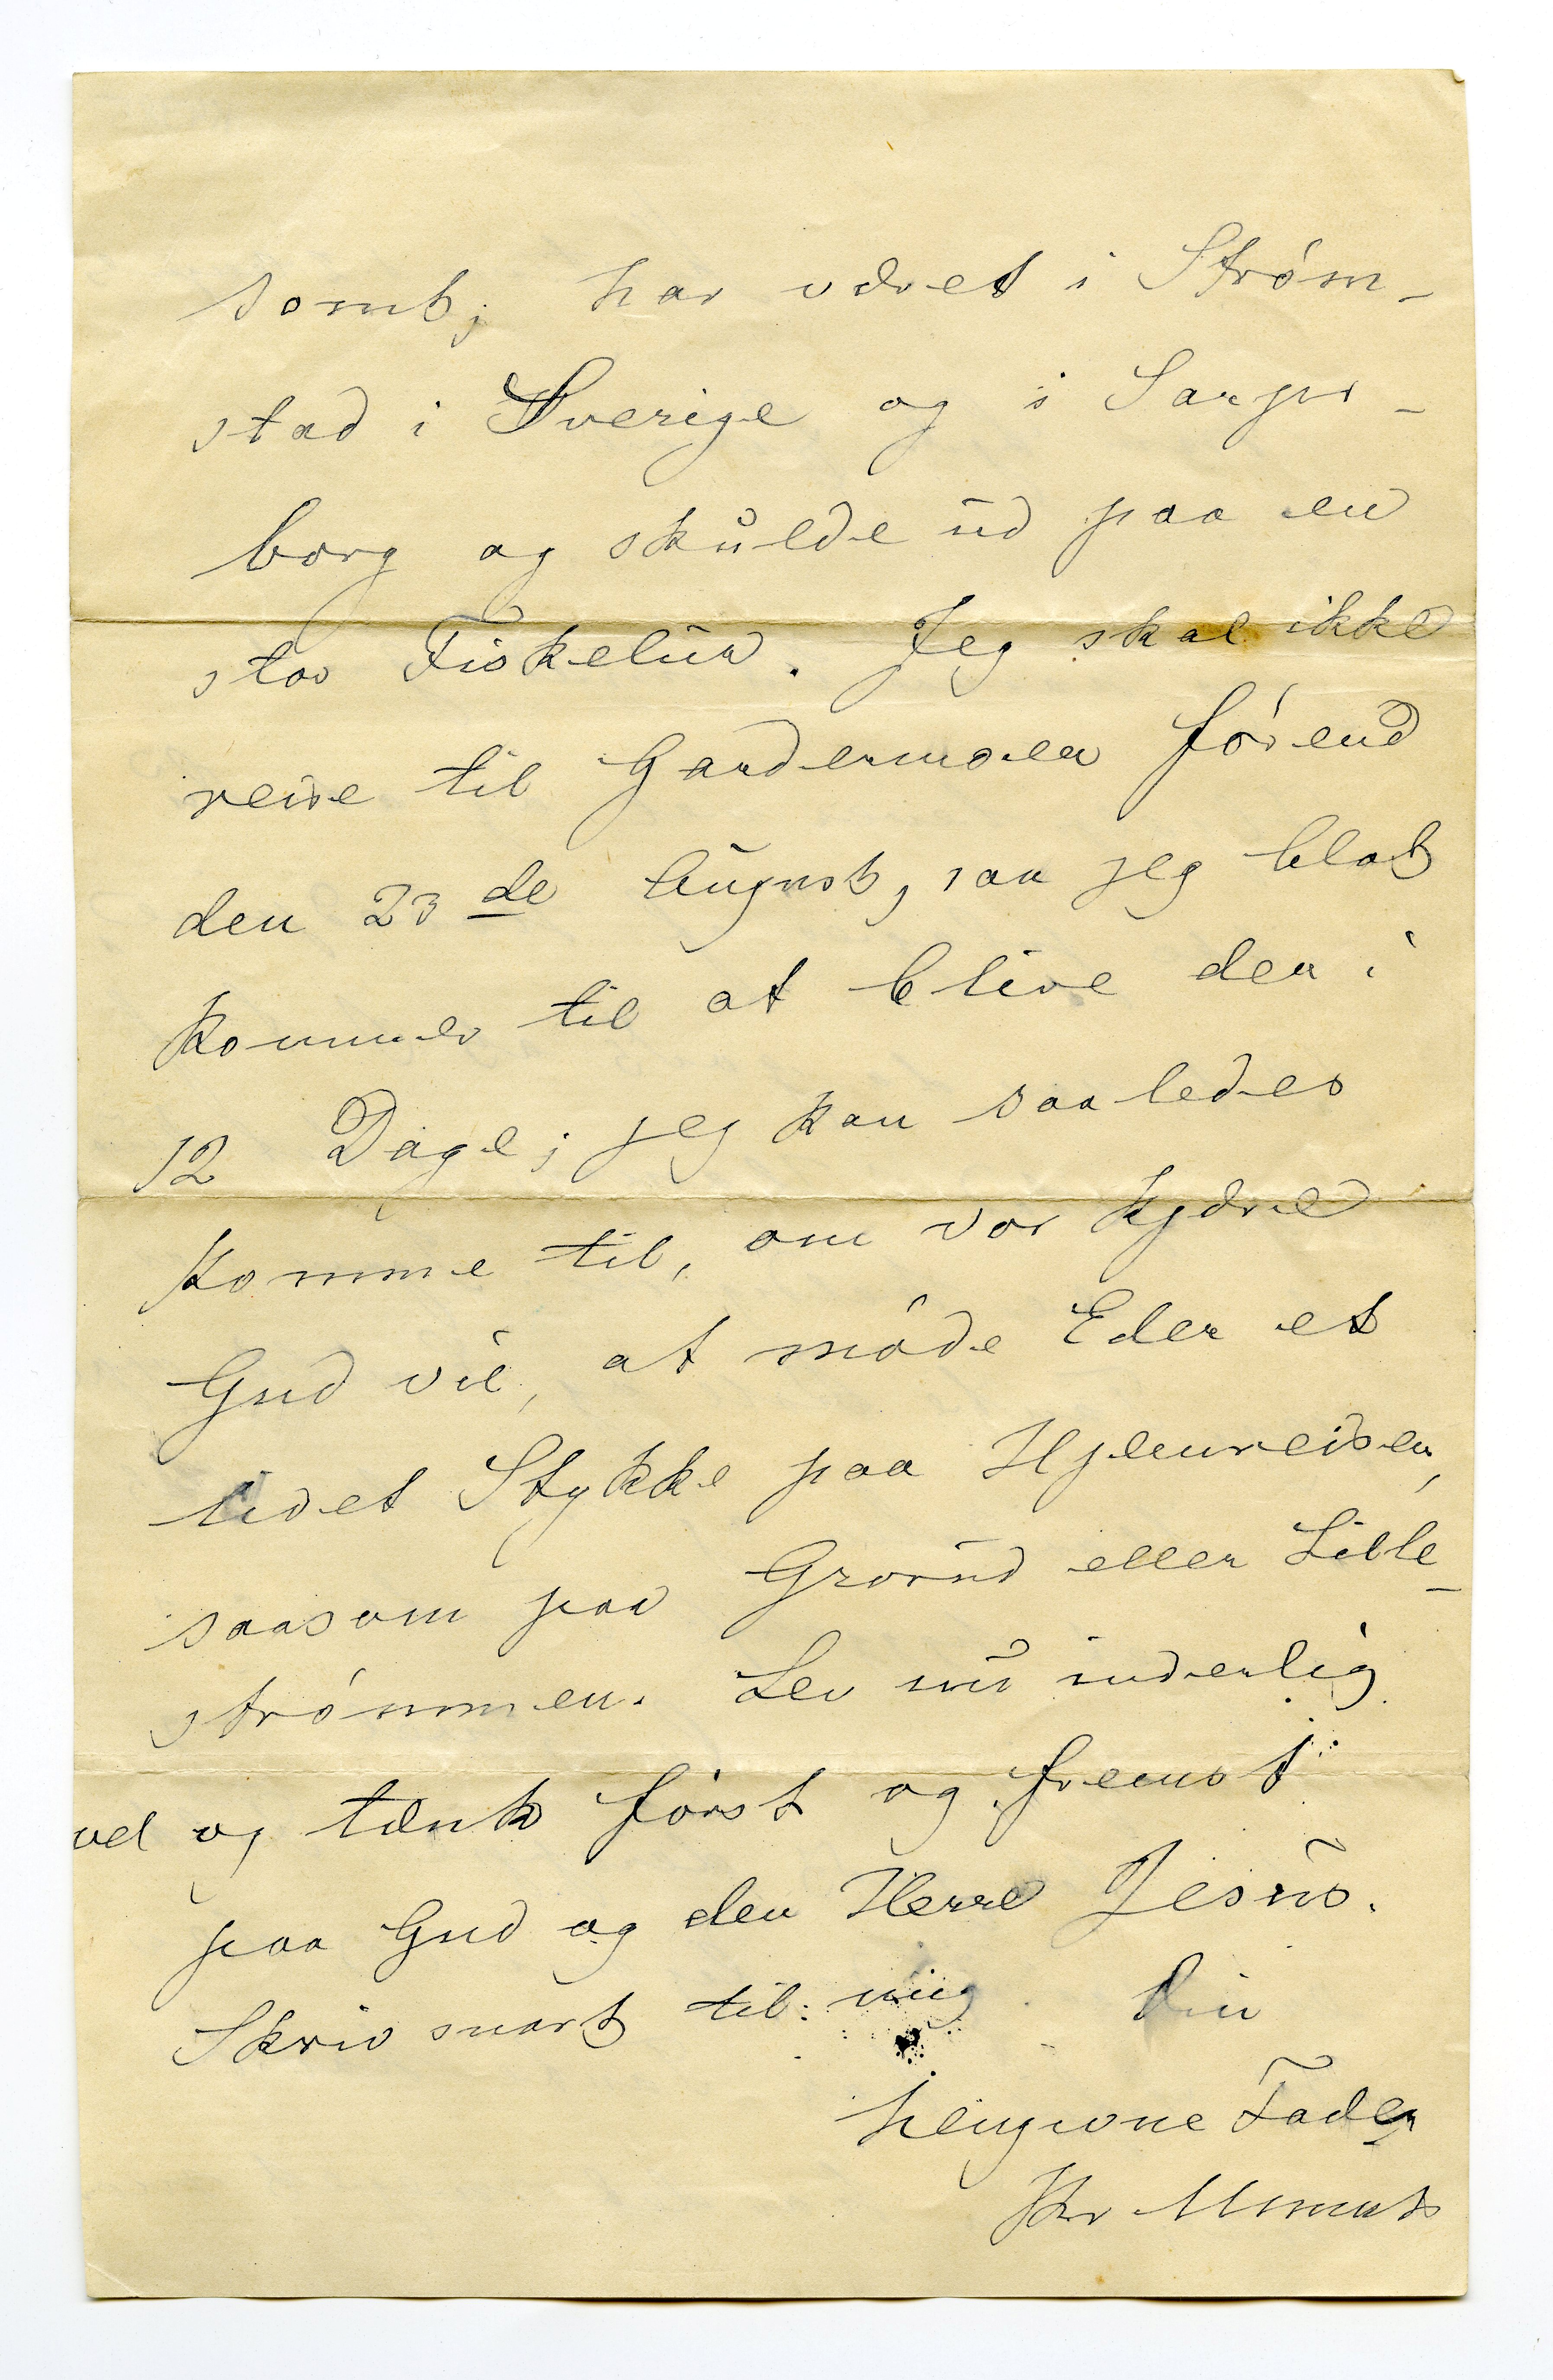 somt; har været i Strøm-
stad i Sverige og i Sarps-
borg og skulde ud paa en
stor Fisketur. Jeg skal ikke
reise til Gardermoen førend
den 23de August, saa jeg blot
kommer til at blive der i
12 Dage; jeg kan saaledes
komme til, om vor kjære
Gud vil, at møde Eder et
lidet Stykke paa Hjemreisen,
saasom paa Grorud eller Lille-
strømmen. Lev nu inderlig
vel og tænk først og fremst
paa Gud og den Herre Jesus.
Skriv snart til mig. Din
hengivne Fader
Chr Munch